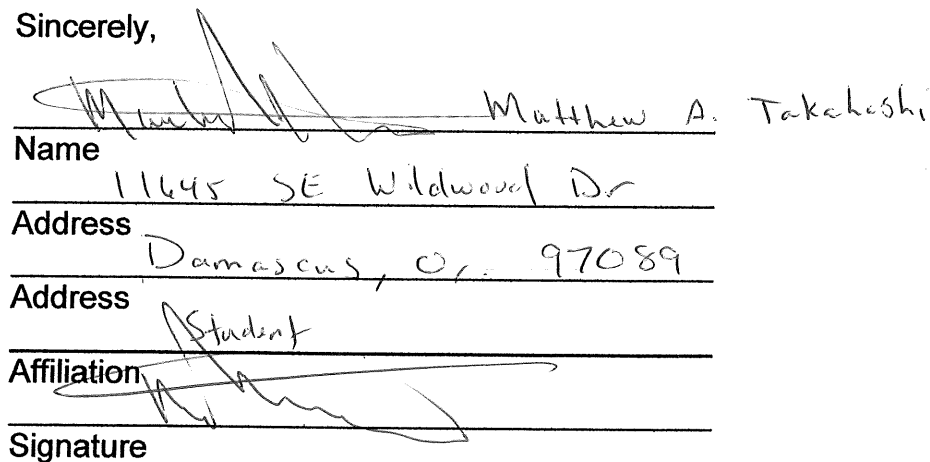 Sincerely,
Matthew A. Takahashi
Name
11645 SE Wildwood Dr
Address
Damascus, Or. 97089
Address
Student
Affiliation
Signature